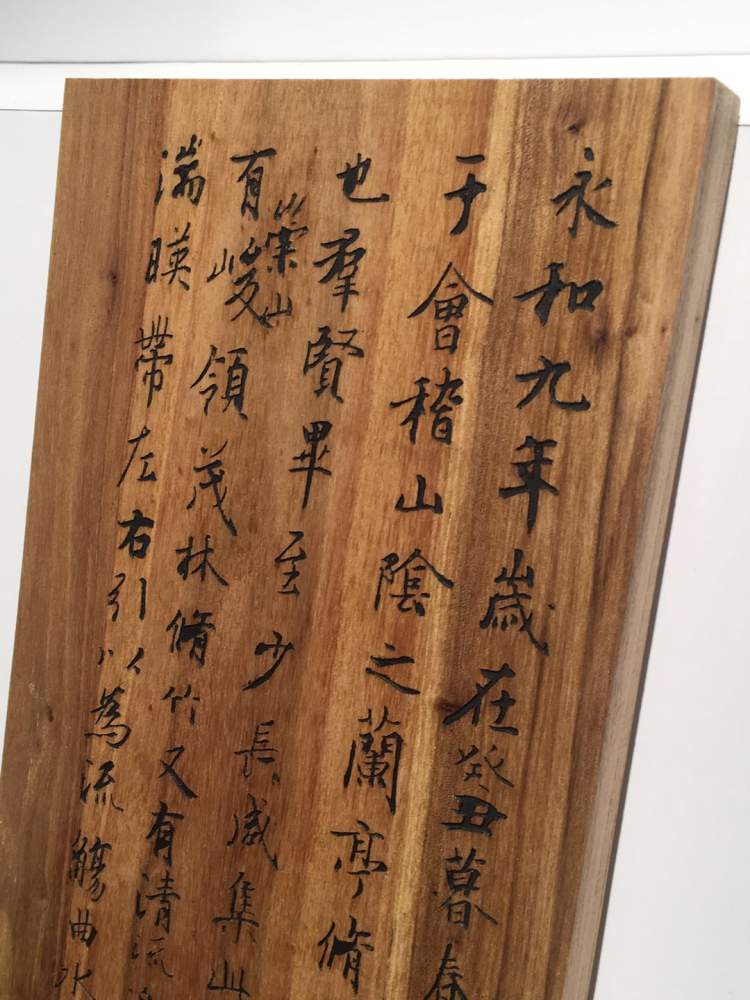 永和九年歲在癸丑暮春
于會稽山陰之蘭亭脩
也羣賢畢至少長咸集此
有崇山峻領茂林脩竹又有清流
湍暎帶左右引以為流觴曲水